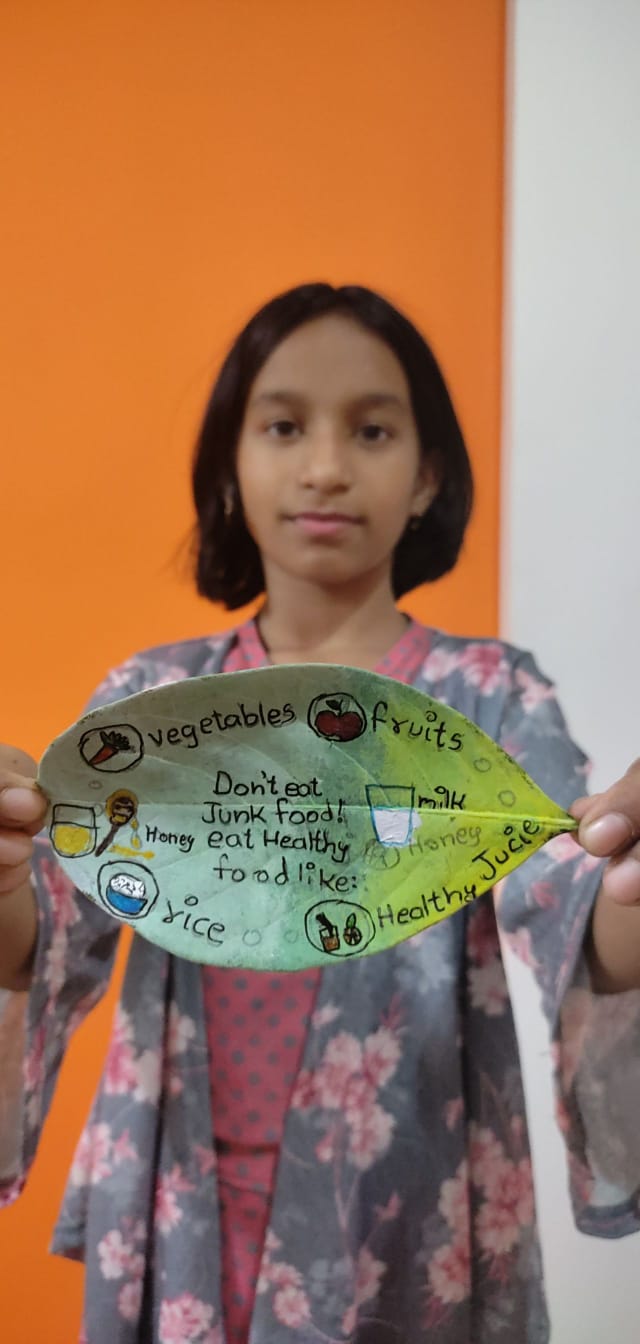 vegetables
fruits
Don't eat
Junk food!
eat Healthy
food like:
Honey
milk
Honey
rice
Healthy Jucie